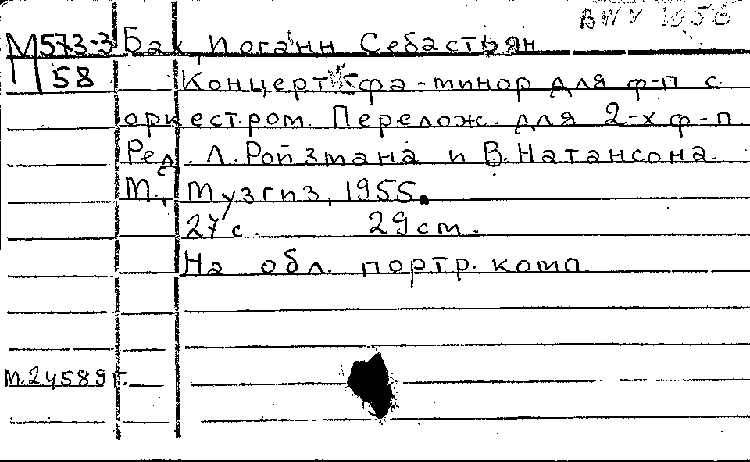 BWV 1056
М573-3 Бах, Иоганн Себастьян
58 Концерт фа-минор для ф-п с
оркестром. Перелож. для 2-х ф-п.
Ред. Л. Ройзмана и В. Натансона.
М., Музгиз, 1955.
27 с. 29 см.
На обл. портр. комп.
М.24589г.